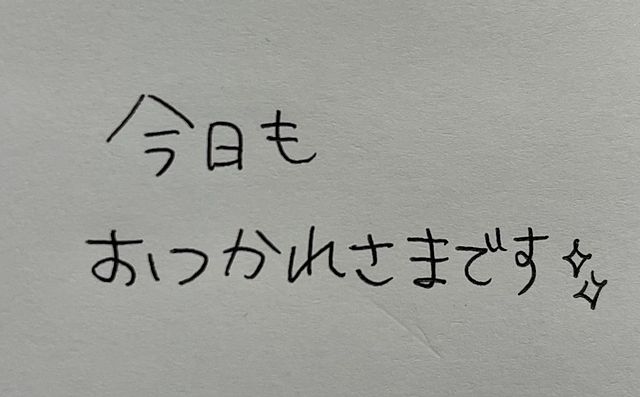 今日も
おつかれさまです✨